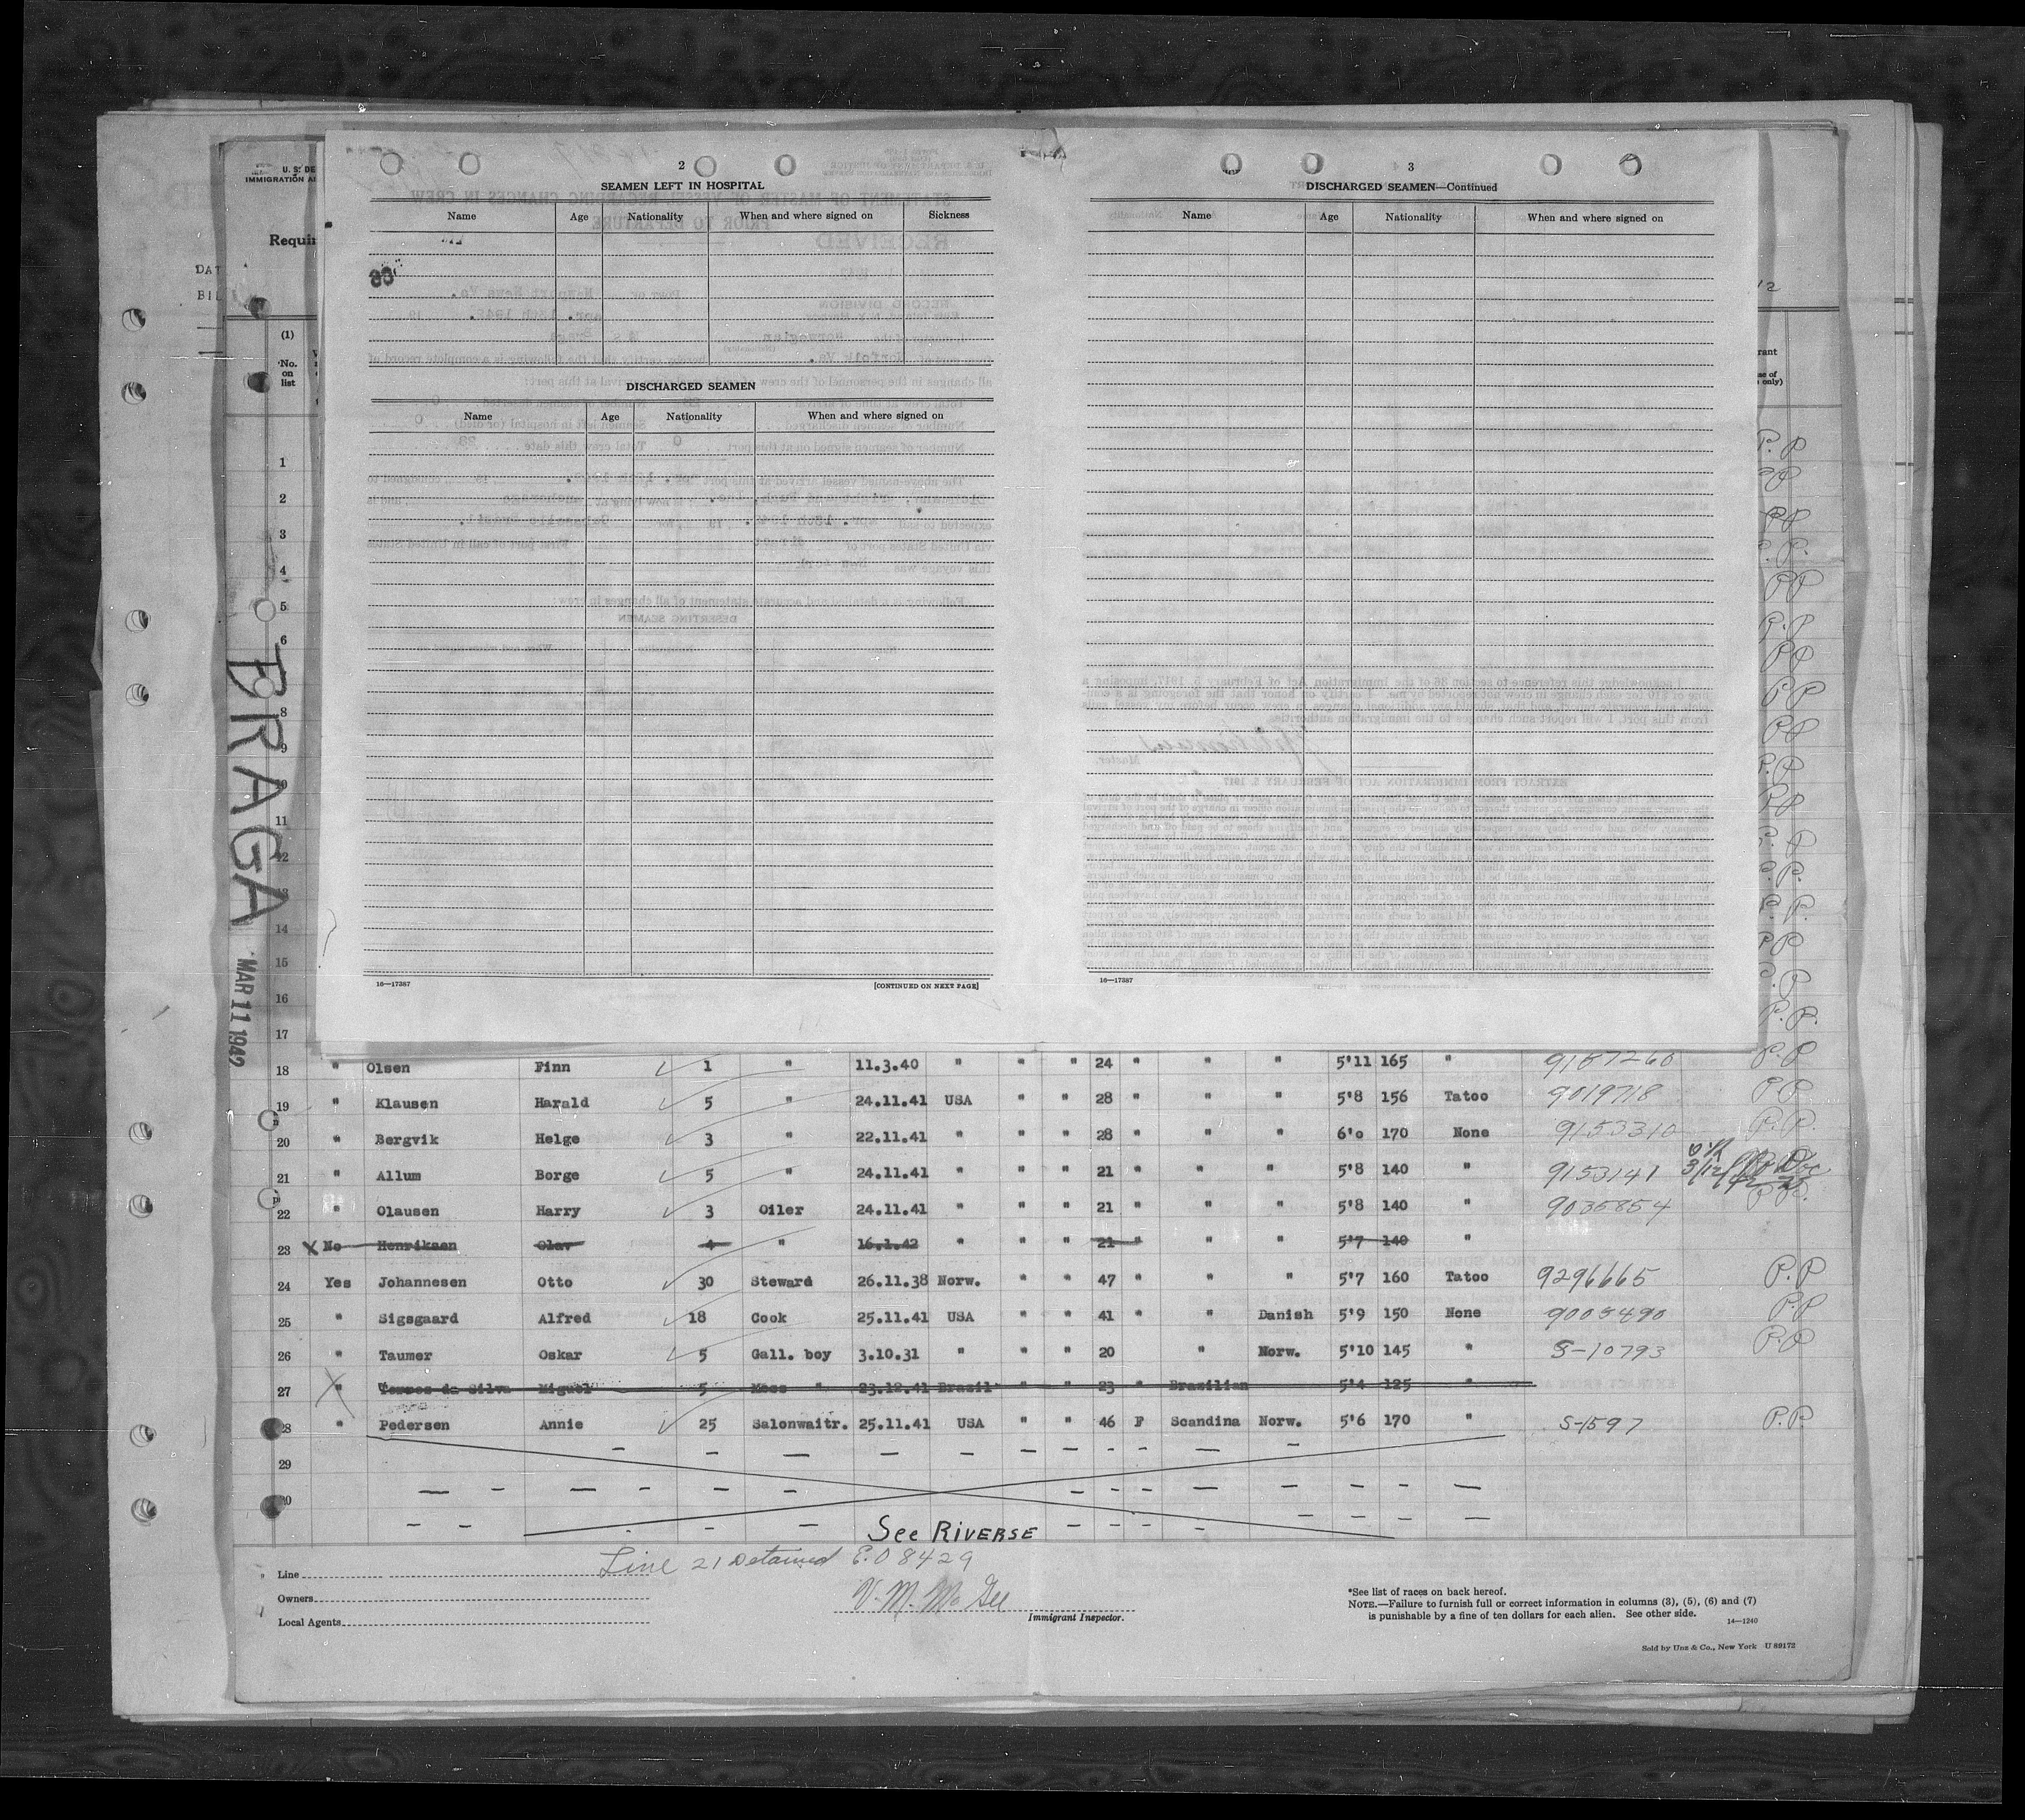 U. S. DE
IMMIGRATION A
Requir
DAT
BIL
(1)
No.
on
list
2
SEAMEN LEFT IN HOSPITAL
Name Age Nationality When and where signed on Sickness
DISCHARGED SEAMEN
Name Age Nationality When and where signed on
16—17387 [CONTINUED ON NEXT PAGE]
3
DISCHARGED SEAMEN—Continued
Name Age Nationality When and where signed on
16—17387
rant
e of
only)
BRAGA
MAR 11 1942
1 P.P
2 P.P
3 P.P
4 P.P.
5 P.P
6 P.P
P.P
8 P.P
9 P.P
10 P.P
11 P.P
12 P.P
13 P.P.
14 P.P.
15 P.P
16 P.P
17 P.P.
18 " Olsen Finn 1 " 11.3.40 " " " 24 " " " 5'11 165 " 9187260 P.P
19 " Klausen Harald 5 " 24.11.41 USA " " 28 " " " 5'8 156 Tatoo 9019718 P.P
20 " Bergvik Helge 3 " 22.11.41 " " " 28 " " " 6'0 170 None 9153310 P.P.
21 " Allum Borge 5 " 24.11.41 " " " 21 " " " 5'8 140 " 9153141 OK 3/12/42 No Doc
22 " Olausen Harry 3 Oiler 24.11.41 " " " 21 " " " 5'8 140 " 9035854 P.P.
23 X No Henriksen Olav 4 " 16.1.42 " " " 21 " " " 5'7 140 "
24 Yes Johannesen Otto 30 Steward 26.11.38 Norw. " " 47 " " " 5'7 160 Tatoo 9296665 P.P
25 " Sigsgaard Alfred 18 Cook 25.11.41 USA " " 41 " " Danish 5'9 150 None 9005490 P.P
26 " Taumer Oskar 5 Gall. boy 3.10.31 " " " 20 " Norw. 5'10 145 " S-10793 P.P
27 X " Torres da Silva Miguel 5 Mess " 23.12.41 Brazil " " 23 " Brazilian 5'4 125 "
28 " Pedersen Annie 25 Salonwaitr. 25.11.41 USA " " 46 F Scandina Norw. 5'6 170 " S-1597 P.P.
29
30
See RIVERSE
Line 21 Detained E.O 8429
Line
Owners
Local Agents
V. M. McGee
Immigrant Inspector.
*See list of races on back hereof.
NOTE.—Failure to furnish full or correct information in columns (3), (5), (6) and (7)
is punishable by a fine of ten dollars for each alien. See other side. 14—1240
Sold by Unz & Co., New York U 89172